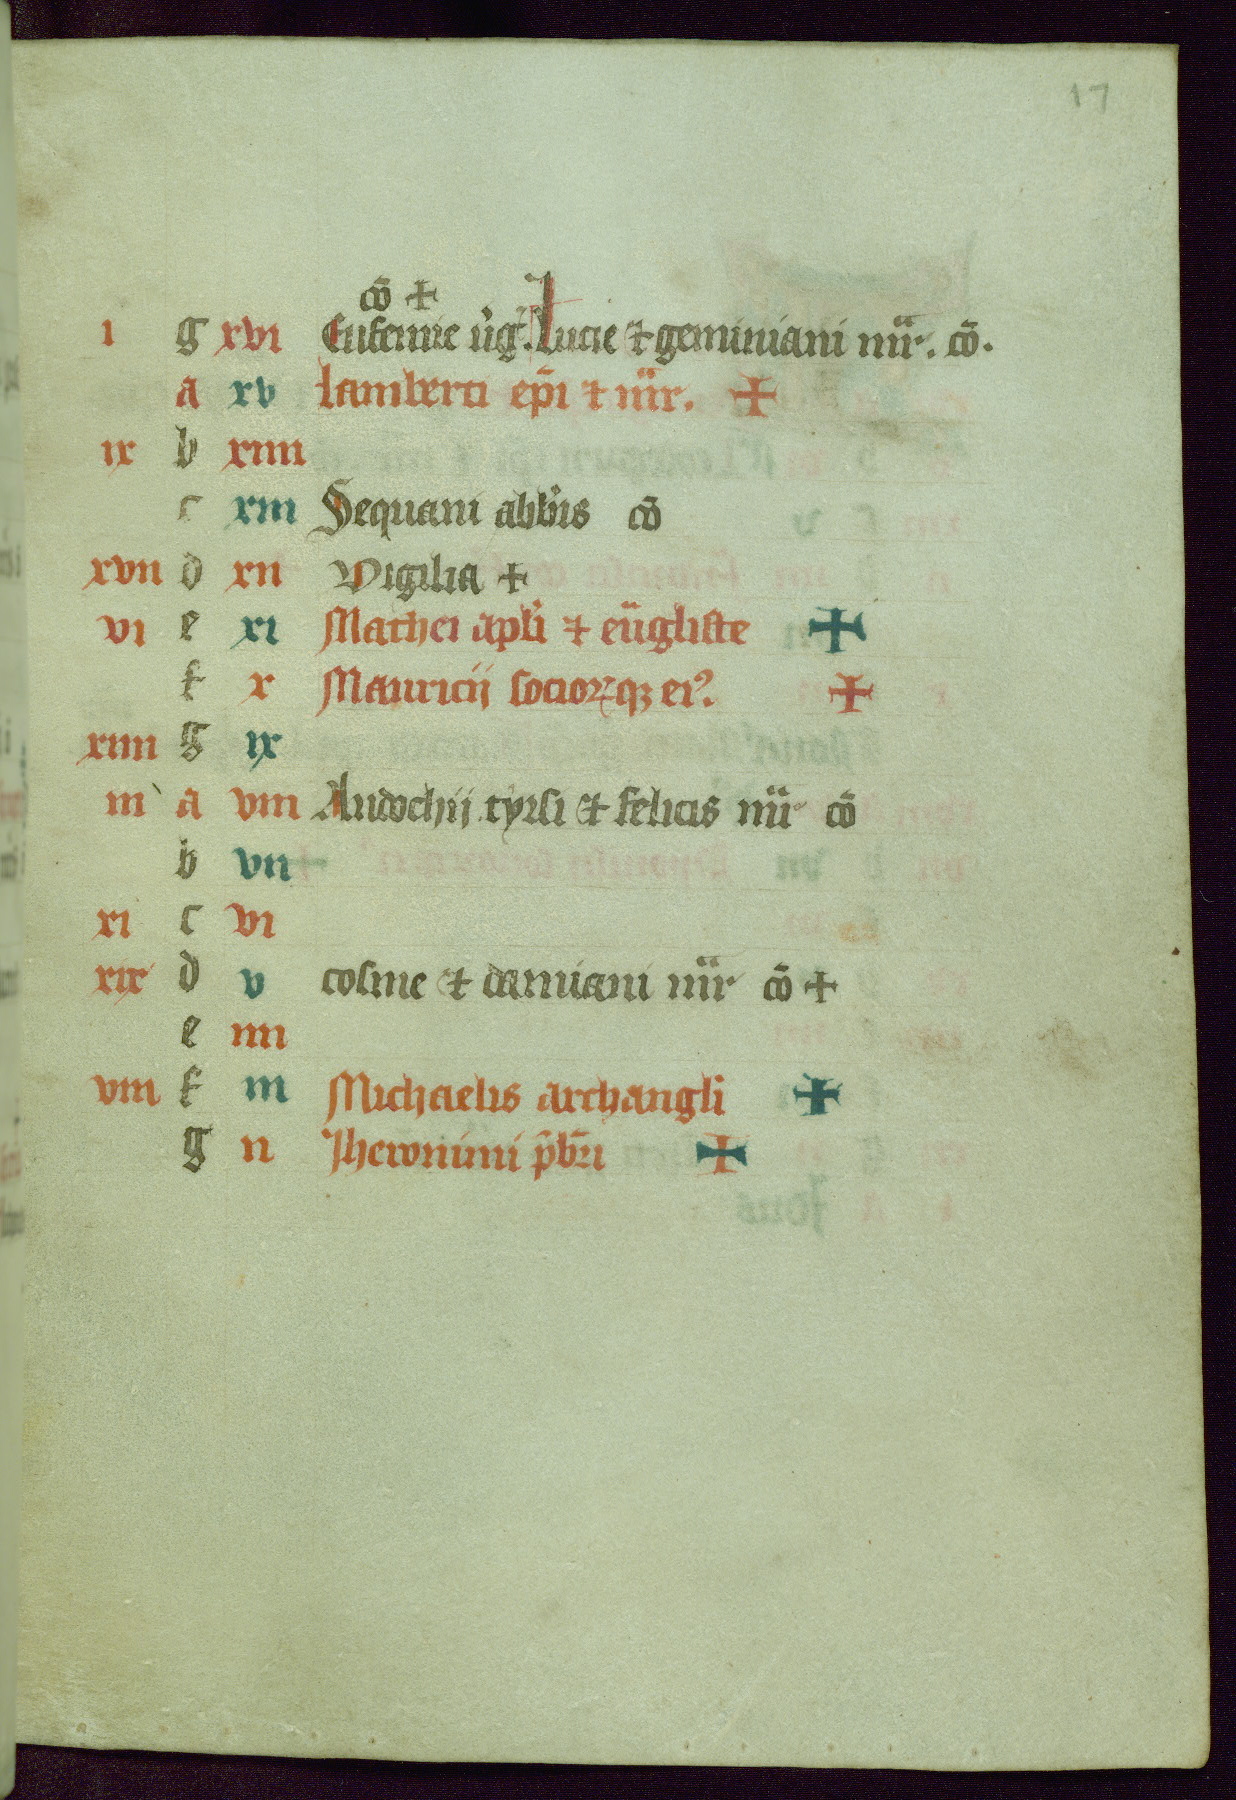 17
cō +
i g xvi Eufemie v̄ḡ. Lucie et geminiani m̄r̄. cō.
a xv Lamberti ep̄i et m̄r̄. +
ix b xiiii
c xiii Sequani abb̄is cō
xvii d xii Vigilia +
vi e xi Mathei apl̄i et eūgliste +
f x Mauricij socioꝝqꝫ eiꝰ. +
xiiii g ix
iii a viii Andochij tyrsi et felicis m̄r̄ cō
b vii
xi c vi
xix d v cosme et damiani m̄r̄ cō +
e iiii
viii f iii Michaelis archangli +
g ii Jheronimi p̄b̄ri +